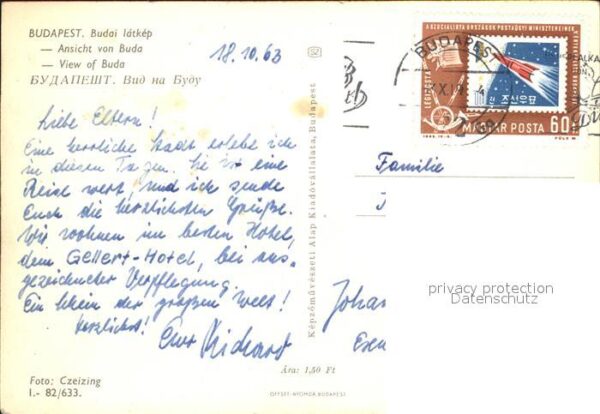 BUDAPEST. Budai látkép
— Ansicht von Buda
— View of Buda
БУДАПЕШТ. Вид на Буду
18.10.63
Liebe Eltern!
Eine herrliche Stadt erlebe ich
in diesen Tagen. Sie ist eine
Reise wert, und ich sende
Euch die herzlichsten Grüße.
Wir wohnen im besten Hotel,
dem Gellert-Hotel, bei aus-
gezeichneter Verpflegung.
Ein Schein der großen Welt!
Herzlichst!
Euer Richard
Foto: Czeizing
I.- 82/633.
Ára: 1,50 Ft
Képzőművészeti Alap Kiadóvállalata, Budapest
OFFSET-NYOMDA BUDAPEST
BUDAPEST
LÉGIPOSTA
조선우표
MAGYAR POSTA
60f
Familie
Joha
Essen
privacy protection
Datenschutz